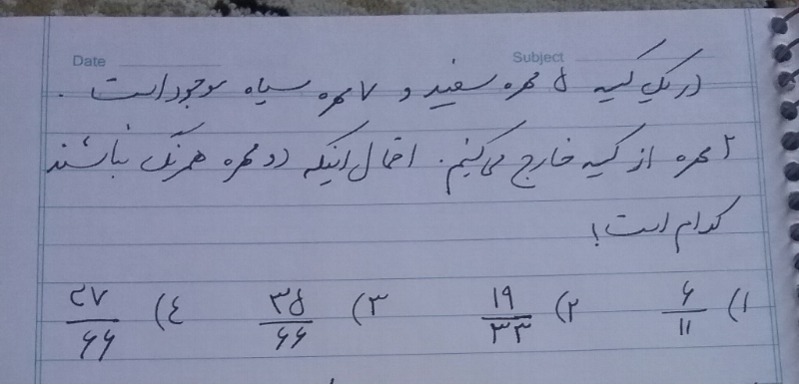 Date Subject
در یک کیسه ۵ مهره سفید و ۷ مهره سیاه موجود است .
۲ مهره از کیسه خارج می‌کنیم . احتمال اینکه دو مهره همرنگ نباشند
کدام است ؟
۱) ۶/۱۱ ۲) ۱۹/۳۳ ۳) ۳۵/۶۶ ۴) ۳۷/۶۶